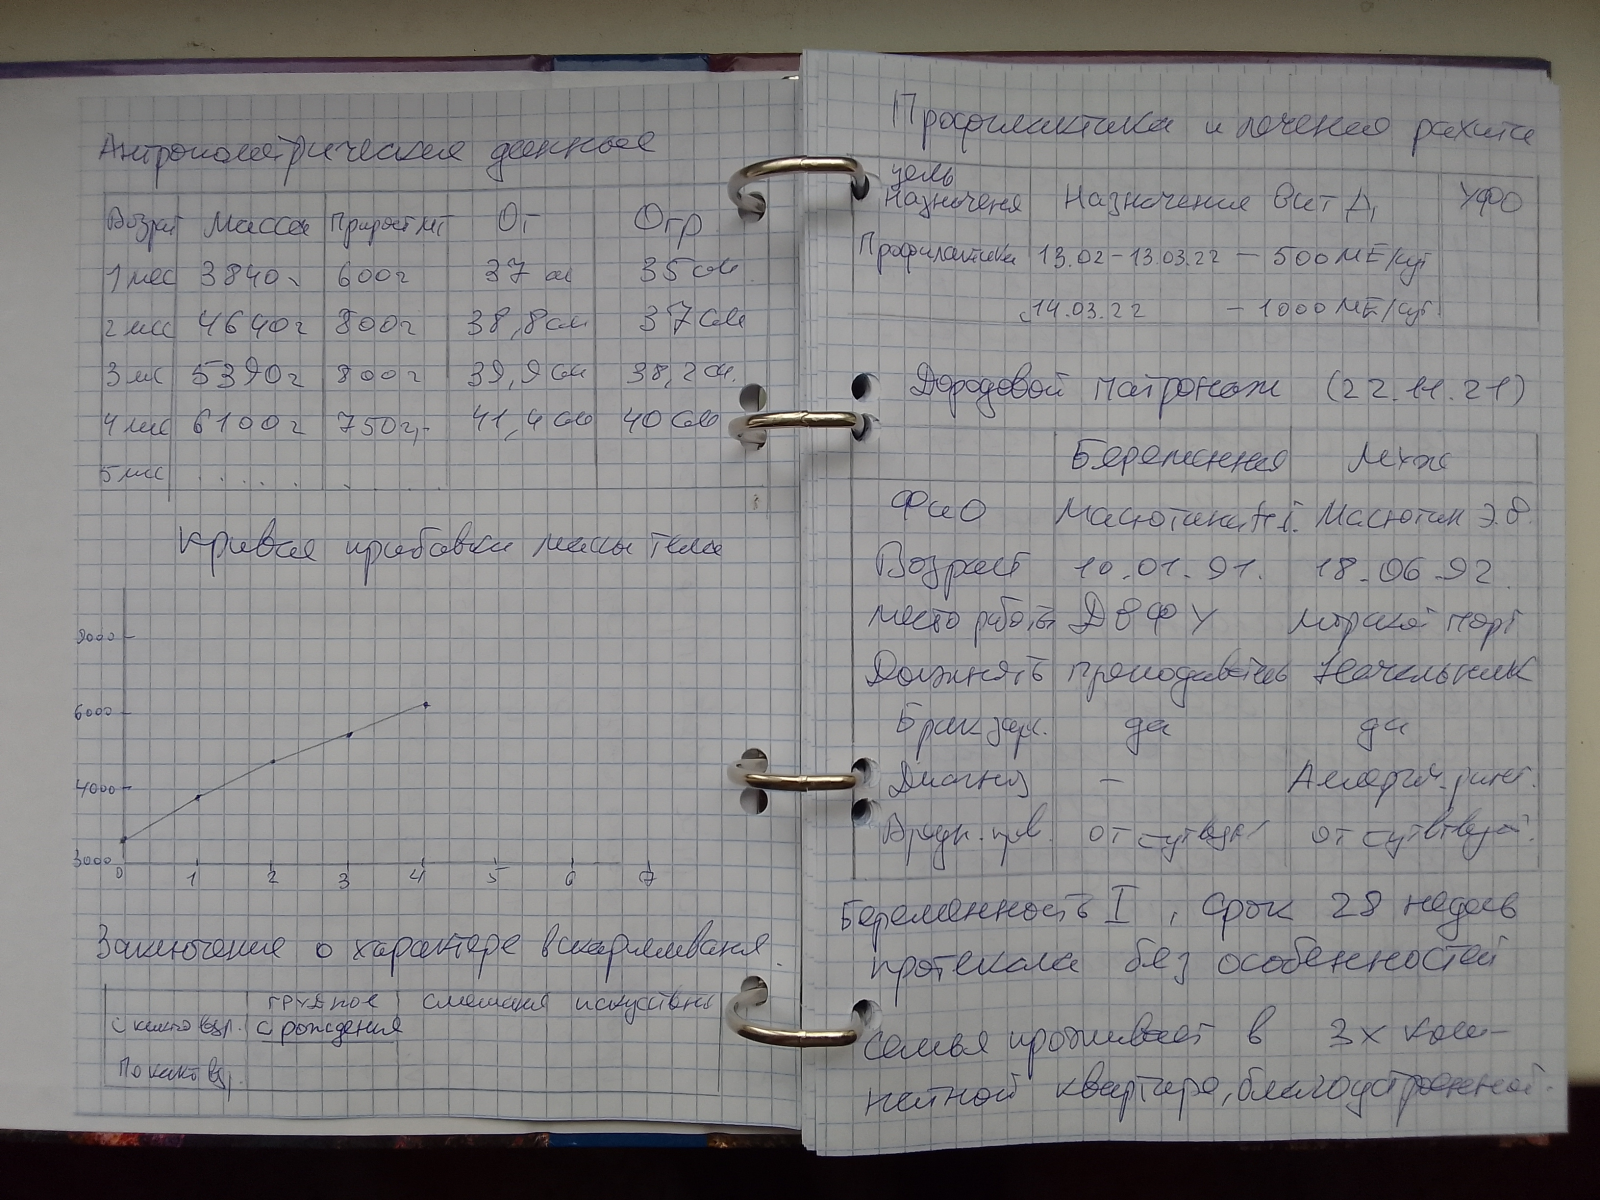 Антропометрические данные
Возраст Масса Прирост МТ Ог Огр
1 мес 3840г 600г 37 см 35 см
2 мес 4640г 800г 38,8 см 37 см
3 мес 5390г 800г 39,9 см 38,2 см.
4 мес 6100г 750г 41,4 см 40 см
5 мес . . . . . . .
Кривая прибавки массы тела
8000
6000
4000
3000
0 1 2 3 4 5 6 7
Заключение о характере вскармливания.
грудное смешання искуствены
с какого возр. с рождения
По какой вз.
Профилактика и лечения рахита
цель
Назначеня Назначение Вит Д, УФО
Профилактика 13.02 - 13.03.22 - 500 МЕ/сут
с 14.03.22 - 1000 МЕ/сут
Дородовой патронаж (22.11.21)
Беременная Муж
ФиО Масютина Масютин Э.
Возраст 10.01.91. 18.06.92.
место работы ДВФУ морской порт
Должнять преподаватель Начальник
Брак зар. да да
Диагноз - Аллергич. ринит.
Вредн. прв. отсутвуют отсутвтвуют.
Беременность I, срок 28 недель
протекала без особенностей
Семья проживает в 3х ком-
натной квартире, благоустроенной.